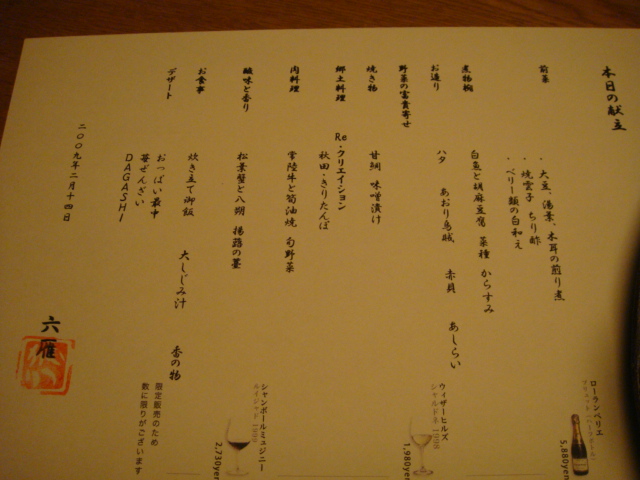 本日の献立
前菜
・大豆、湯葉、木耳の煎り煮
・焼雲子 ちり酢
・ベリー類の白和え
煮物椀
白魚と胡麻豆腐 菜種 からすみ
お造り
ハタ あおり烏賊 赤貝 あしらい
野菜の富貴寄せ
焼き物
甘鯛 味噌漬け
郷土料理
Re・クリエイション
秋田・きりたんぽ
肉料理
常陸牛と筍油焼 旬野菜
酸味と香り
松葉蟹と八朔 揚蕗の薹
お食事
炊き立て御飯 大しじみ汁 香の物
デザート
おっぱい最中
苺ぜんざい
DAGASHI
二〇〇九年二月十四日
六雁
ローランペリエ
5,880yen
ウィザーヒルズ
シャルドネ
1,980yen
シャンボールミュジニー
ルイジャド
2,730yen
限定販売のため
数に限りがございます